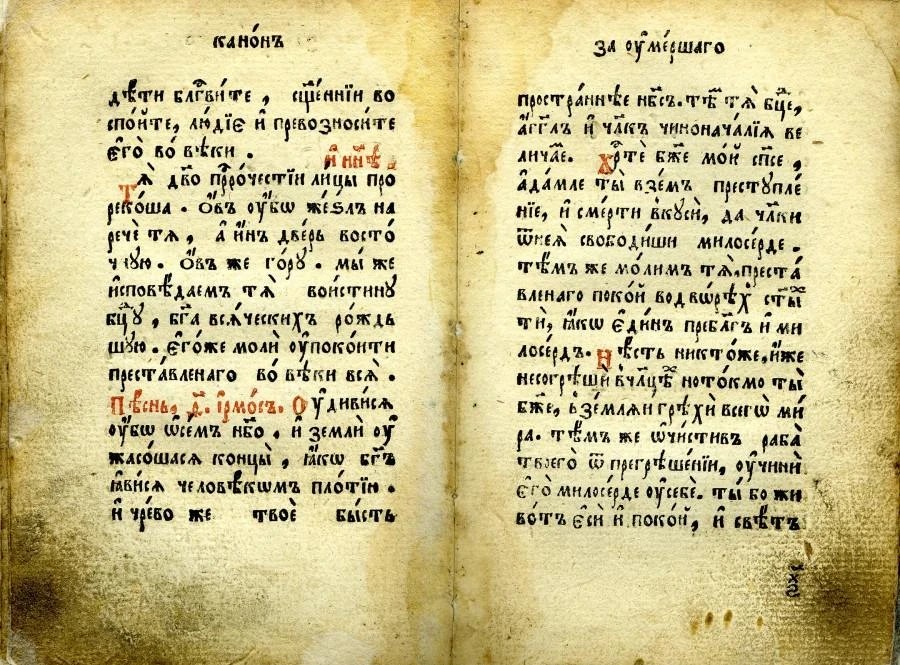 канѡ́нъ
дѣ́ти бл҃гви́те , сщ҃е́ннїи во
спо́йте, лю́дїе и҆ превозноси́те
є҆гѡ̀ во вѣ́ки . и҆ нн҃ѣ
Тѧ̀ дв҃о прⷪ҇ро́честїи ли́цы про
реко́ша . ѻ҆́въ ᲂу҆́бѡ же́ѕлъ на
рече́ тѧ , а҆ и҆́нъ две́рь восто́
чную . ѻ҆́въ же го́ру . мы́ же
и҆сповѣ́даемъ тѧ̀ вои́стинꙋ
бц҃ꙋ , бг҃а всѧ́ческихъ ро́ждь
шꙋю . є҆го́же молѝ ᲂу҆поко́ити
преста́вленаго во вѣ́ки всѧ̀ .
Пѣ́снь, ѳ҃. і҆рмо́съ. Оу҆диви́сѧ
ᲂу҆́бѡ ѡ҆се́мъ нб҃о . и҆ землѝ ᲂу҆
жасо́шасѧ концы̀ , ꙗ҆́кѡ бг҃ъ
ꙗ҆ви́сѧ человѣ́кѡмъ пло́тїю .
и҆ чре́во же твоѐ бы́сть
за ᲂу҆ме́ршаго
простра́ннѣе нб҃съ. тѣ́мъ тѧ̀ бц҃е,
а҆́гг҃лъ и҆ чл҃къ чинонача́лїѧ ве
лича́е. Хрⷭ҇тѐ бж҃е мо́й сп҃се ,
а҆да́мле ты̀ взе́мъ преступле́
нїе, и҆ сме́рти вкусѝ, да чл҃ки
ѿнеѧ̀ свободи́ши милосе́рде .
тѣ́мъ же мо́лимъ тѧ̀, преста́
вленаго поко́й водво́рѣхъ ст҃ы
ти, ꙗ҆́кѡ є҆ди́нъ пребл҃гъ и҆ ми
лосе́рдъ. Нѣ́сть никто́же, и҆́же
несогрѣшѝ в чл҃цѣхъ но то́кмо ты̀
бж҃е, взе́млѧи грѣхѝ всегѡ̀ мі́
ра. тѣ́мъ же ѡ҆чи́стивъ раба̀
твоего̀ ѿ прегрѣше́нїи, ᲂу҆чинѝ
є҆го̀ милосе́рде ᲂу҆себѐ. ты́ бо жи
во́тъ є҆сѝ и҆ поко́й, и҆ свѣ́тъ